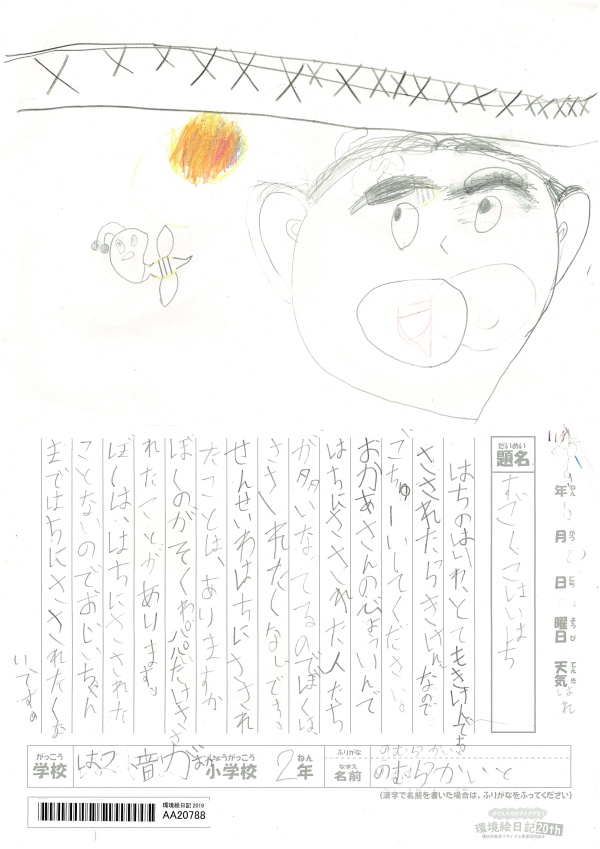 年 月 日 曜日 天気 はれ
ねん がつ にち ようび てんき
だいめい
題名
すごくこはいはち
はちのはりわ、とてもきけんでも
さされたらきけんなので
ごちゅーいしてください。
おかあさんの心ょっいんで
はちにさされた人たち
が多いなってるのでぼくは
さされたくないです。
せんせいわはちにさされ
たことは、ありますか
ぼくのかぞくわパパだけささ
れたことがあります。
ぼくは、はちにさされた
ことないのでおじいちゃん
まではちにさされたくな
いです。
がっこう
学校
はつ音がおか
しょうがっこう
小学校
2
ねん
年
ふりがな
のむらかい
なまえ
名前
のむらかいと
(漢字で名前を書いた場合は、ふりがなをふってください)
環境絵日記 2019
AA20788
環境絵日記20th